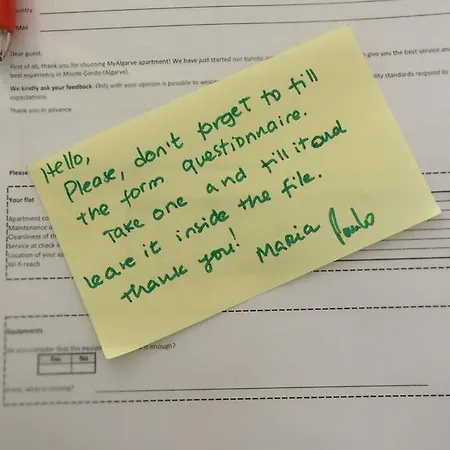 ountry
Mail
Dear guest,
First of all, thank you for choosing MyAlgarve apartment! We have just started our give you the best service and
best experience in Monte Gordo (Algarve).
We kindly ask your feedback. Only with your opinion is possible to ity standards respond to
expectations.
Thank you in advance.
Hello,
Please, don't forget to fill
the form questionnaire.
Take one and fill it and
leave it inside the file.
thank you!
Maria Paulo
Please
Your flat
Apartment co
Maintenance o
Cleanliness of th
Service at check i
Location of your ap
Wi-fi reach
Equipments
Do you consider that the equip is enough?
Yes No
If not, what is missing?